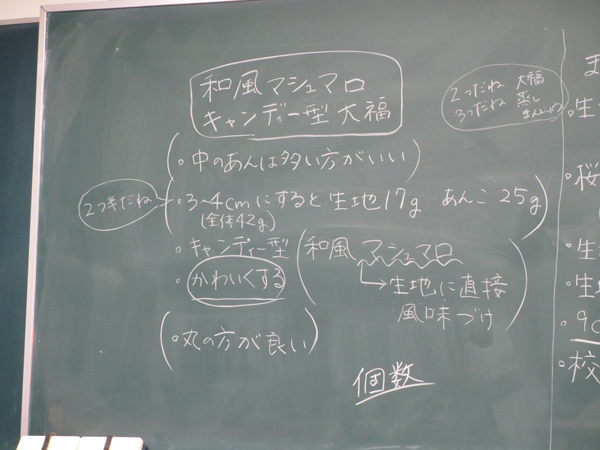 和風マシュマロ
キャンデー型大福
2つだね 大福
3つだね 蒸し
まんじゅう
・中のあんは多い方がいい
2つ半だね
・3~4cmにすると生地17g あんこ25g
(全体42g)
・キャンディー型
・かわいくする
和風マシュマロ
→生地に直接
風味づけ
・丸の方が良い
個数
ま
・生
・桜
・生
・生
・9c
・校